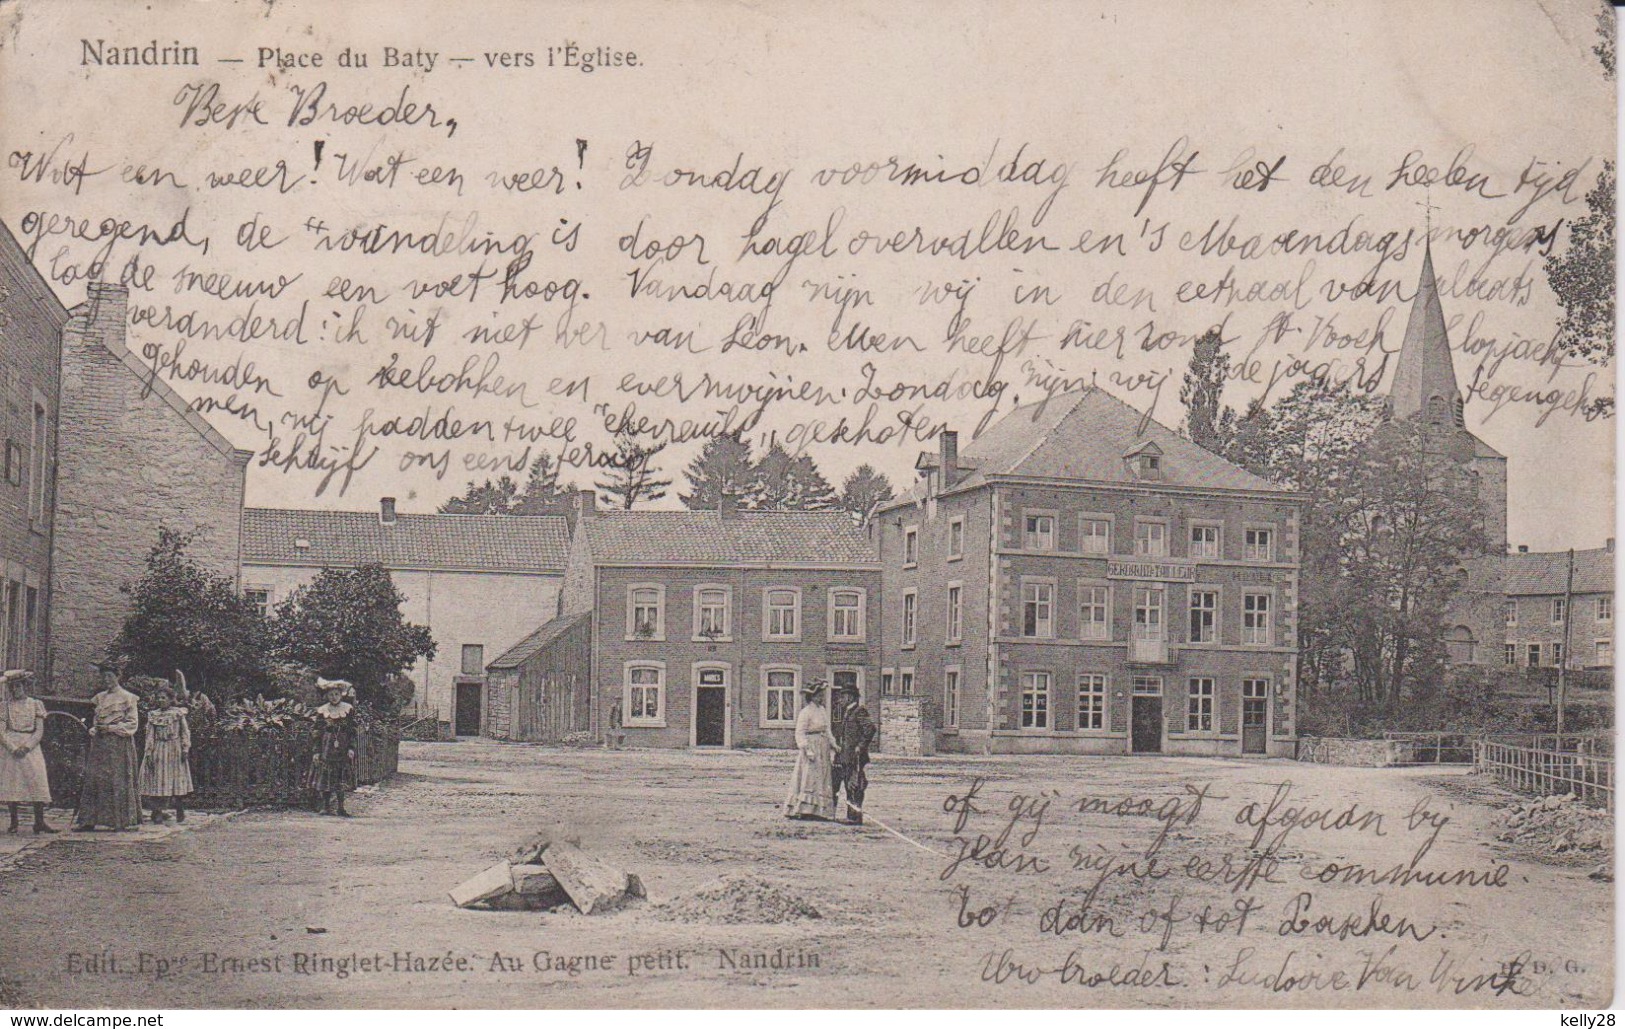 Nandrin — Place du Baty — vers l'Église.
Beste Broeder,
Wat een weer! Wat een weer! Zondag voormiddag heeft het den heelen tijd
geregend, de "wandeling is door hagel overvallen en 's Maandags morgens
lag de sneeuw een voet hoog. Vandaag zijn wij in den eetzaal van plaats
veranderd: ik zit niet ver van Léon. Men heeft hier rond St. Roch klopjacht
gehouden op reebokken en everzwijnen. Zondag zijn wij de jagers tegengeko-
men, zij hadden twee "chevreuils" geschoten
Schrijf ons eens terug
of gij moogt afgaan bij
Jean zijne eerste communie.
Tot dan of tot Paschen.
Uw broeder: Ludovic Van Winkel
GERONNEZ TAILLEUR
HOTEL
Edit. Epse Ernest Ringlet-Hazée. Au Gagne petit. Nandrin
D. G.
delcampe.net
kelly28